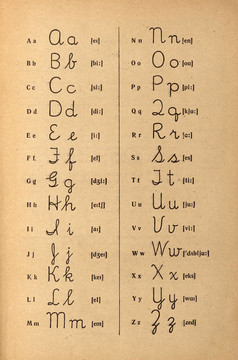 A a Aa [eı]
B b Bb [bi:]
C c Cc [si:]
D d Dd [di:]
E e Ee [i:]
F f Ff [ef]
G g Gg [dʒi:]
H h Hh [eıtʃ]
I i Ii [aı]
J j Jj [dʒeı]
K k Kk [keı]
L l Ll [el]
M m Mm [em]
N n Nn [en]
O o Oo [ou]
P p Pp [pi:]
Q q Qq [kju:]
R r Rr [a:]
S s Ss [es]
T t Tt [ti:]
U u Uu [ju:]
V v Vv [vi:]
W w Ww ['dʌblju:]
X x Xx [eks]
Y y Yy [waı]
Z z Zz [zed]